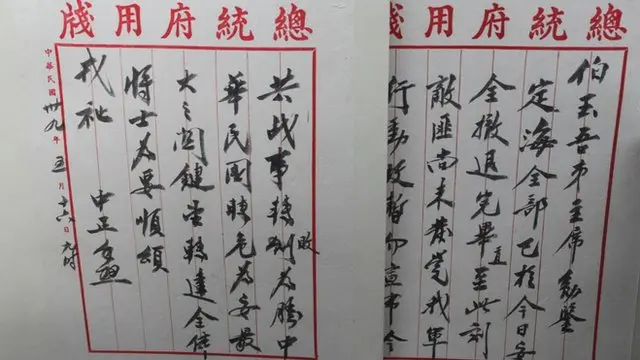 總統府用牋
伯玉吾弟主席勛鑒
定海全部已於今日安
全撤退完畢直至此刻
敵匪尚未發覺我軍
行動故暫勿宣布今
總統府用牋
共戰事轉敗為勝中
華民國轉危為安最
大之關鍵希轉達全體
將士為要順頌
戎祉 中正手啟
中華民國卅九年五月十六日九時